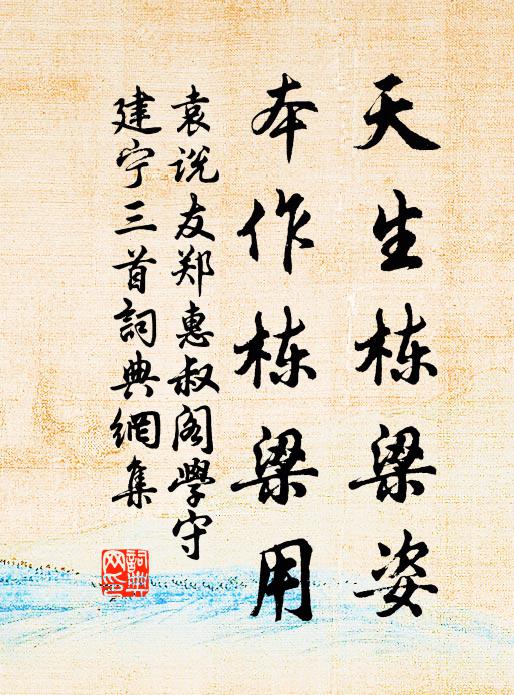 天生栋梁姿
本作栋梁用
袁说友郑惠叔阁学守
建宁三首詞典網集